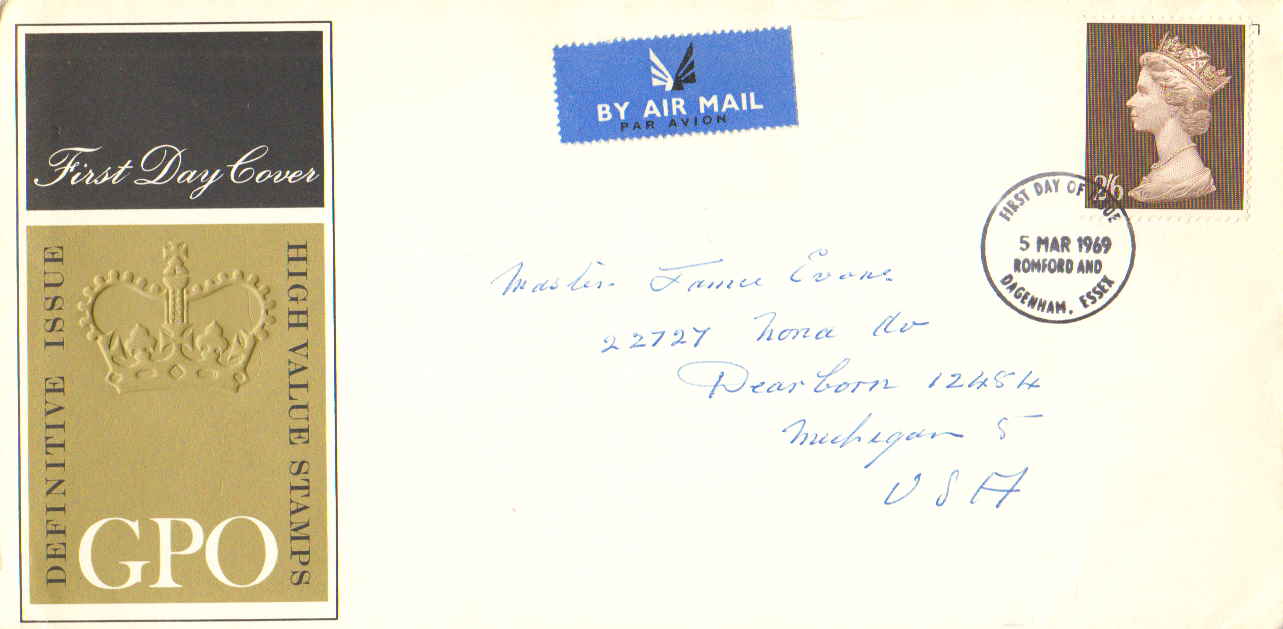 First Day Cover
DEFINITIVE ISSUE
HIGH VALUE STAMPS
GPO
BY AIR MAIL
PAR AVION
2/6
FIRST DAY OF ISSUE
5 MAR 1969
ROMFORD AND
DAGENHAM, ESSEX
Master Evans
22727 Nona
Dearborn 12454
Michigan 5
USA